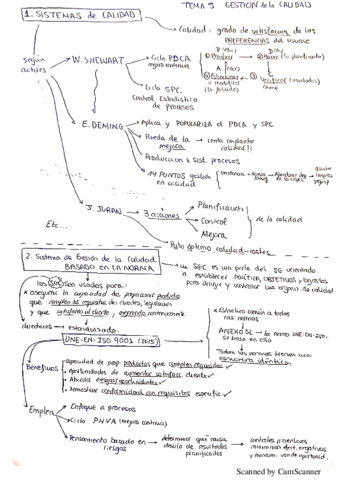 TEMA 5 GESTIÓN de la CALIDAD
1. SISTEMAS de CALIDAD
Calidad: grado de satisfacción de las
PREFERENCIAS del usuario
según
autores
W. SHEWART
Ciclo PDCA
mejora continua
P (Plan)
D (Do)
A (Act)
Verificar (resultados)
Ciclo SPC
Control Estadístico
de Procesos
E. DEMING
Aplica y POPULARIZA el PDCA y SPC
Rueda de la mejora
como implantar
calidad!!
Produccion = Sist. procesos
14 PUNTOS gestión
en calidad
J. JURAN
3 acciones
Planificación
Control
Mejora
de la calidad
Etc...
Pto óptimo calidad-costes
2. Sistema de Gestión de la Calidad
BASADO EN LA NORMA
un SGC es un parte del SG orientado
a establecer POLÍTICA, OBJETIVOS y
para dirigir y controlar una organiz. de calidad
los SGC son usados para:
* asegurar la capacidad de proporcionar productos
que cumplen los requisitos del cliente, legislación
y que satisfacen al cliente, mejorando continuamente
directrices → estandarizado:
UNE-EN-ISO 9001 (2015)
* Estructura común a todas
las normas
ANEXO SL → la norma
se basa en ella
Todas las normas tienen una
estructura idéntica.
Beneficios
capacidad de prop. productos que cumplen requisitos
Oportunidades de aumentar satisfacc. cliente
Aborda riesgos/oportunidades
Demostrar conformidad con requisitos específic
Emplea
Enfoque a procesos
Ciclo PHVA (mejora continua)
Pensamiento basado en
riesgos
determinar qué causa
desvío de resultados
planificados
controles preventivos
minimizar efect. negativos
y maximiz. uso de oportunid.
Scanned by CamScanner